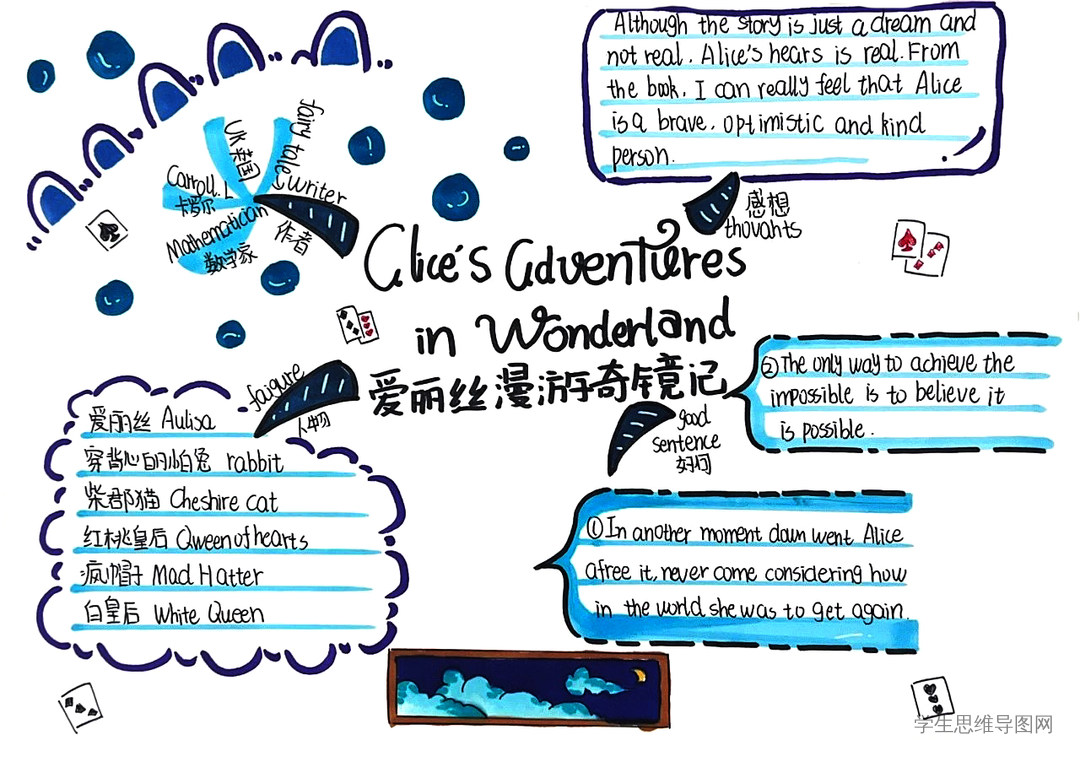 Although the story is just a dream and
not real. Alice's hears is real. From
the book. I can really feel that Alice
is a brave. optimistic and kind
person.
感想
thovahts
UK 英国
fairy tale
Carroll. L
卡罗尔
writer
作者
Mathematician
数学家
Alice's Adventures
in Wonderland
爱丽丝漫游奇镜记
faigure
人物
爱丽丝 Aulisa
穿背心的怕兔 rabbit
柴郡猫 Cheshire cat
红桃皇后 Qween of hearts
疯帽子 Mad Hatter
白皇后 White Queen
②The only way to achieve the
impossible is to believe it
is possible.
good
sentence
好句
①In another moment down went Alice
afree it, never come considering how
in the world she was to get again.
学生思维导图网